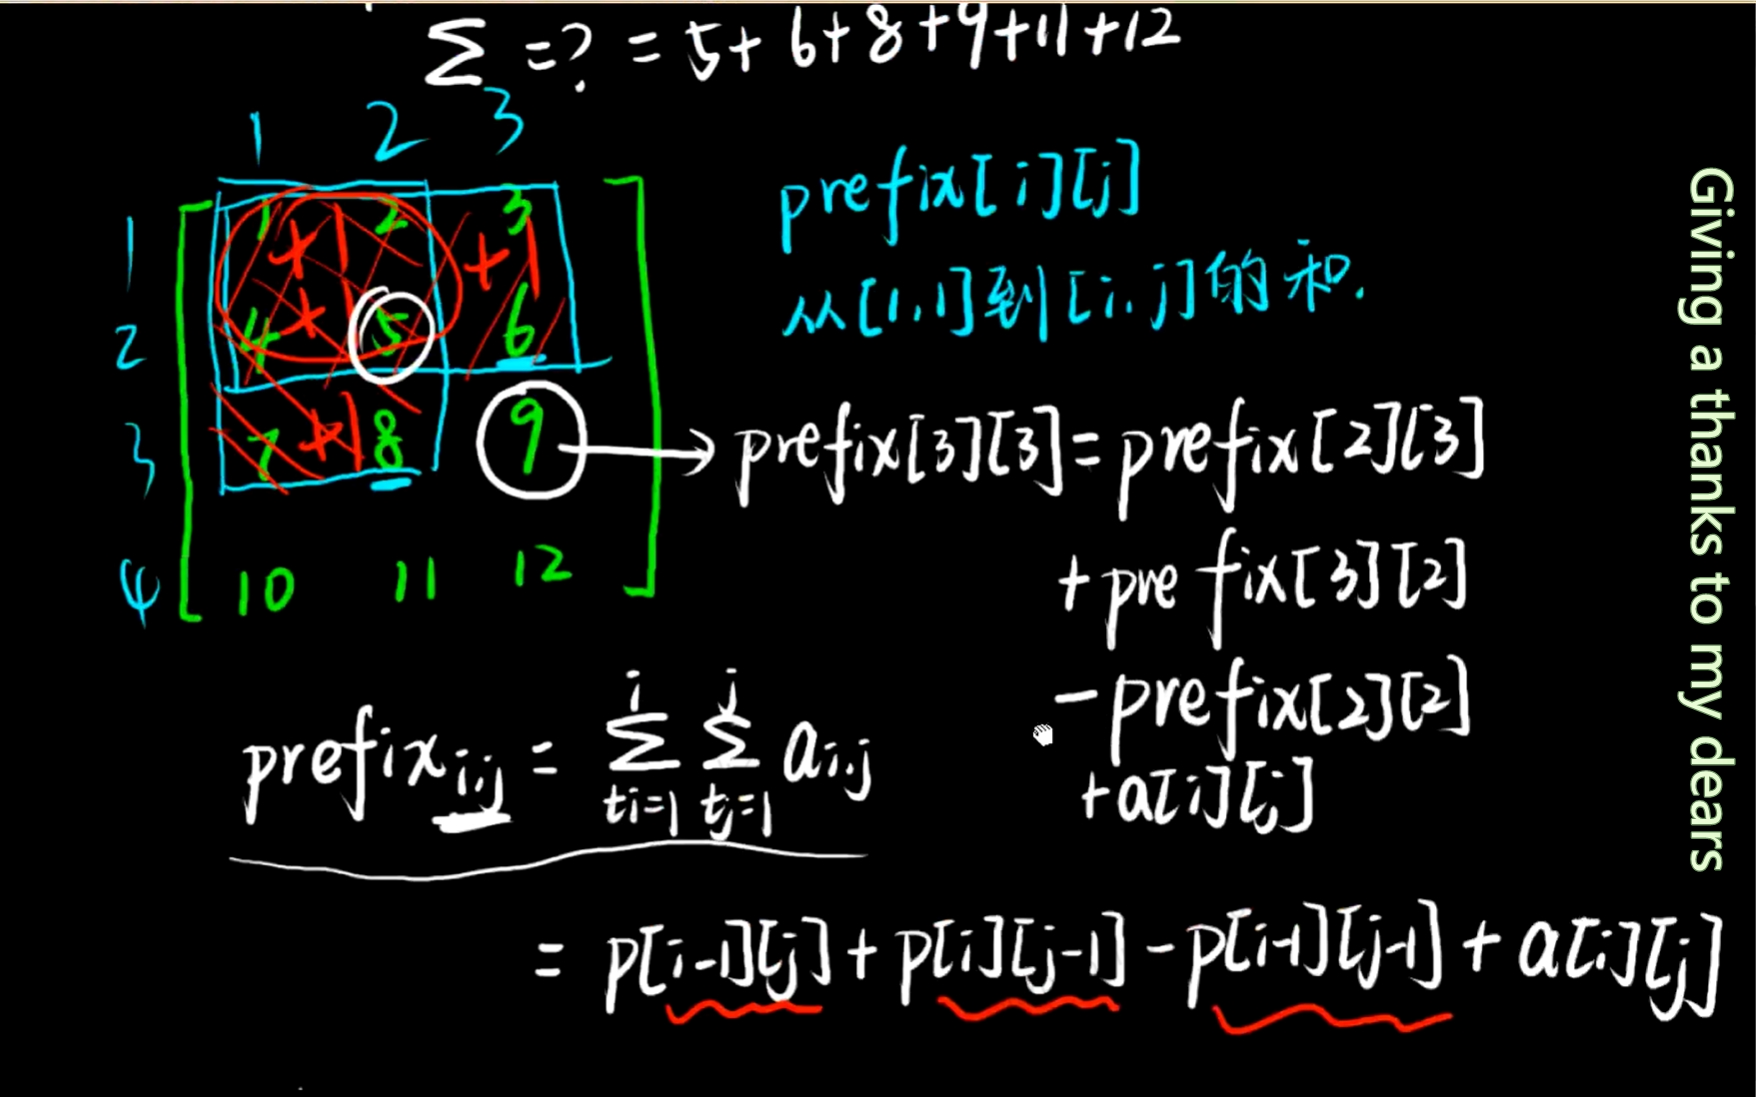 Σ =? = 5+6+8+9+11+12
1 2 3
1 1 2 3
+1 +1
2 4 5 6
+1
3 7 8 9
+1
4 10 11 12
prefix[i][j]
从[1,1]到[i,j]的和.
prefix[3][3]=prefix[2][3]
+prefix[3][2]
-prefix[2][2]
+a[i][j]
prefix i,j = Σ Σ a i,j
i j
ti=1 tj=1
= p[i-1][j]+p[i][j-1]-p[i-1][j-1]+a[i][j]
Giving a thanks to my dears